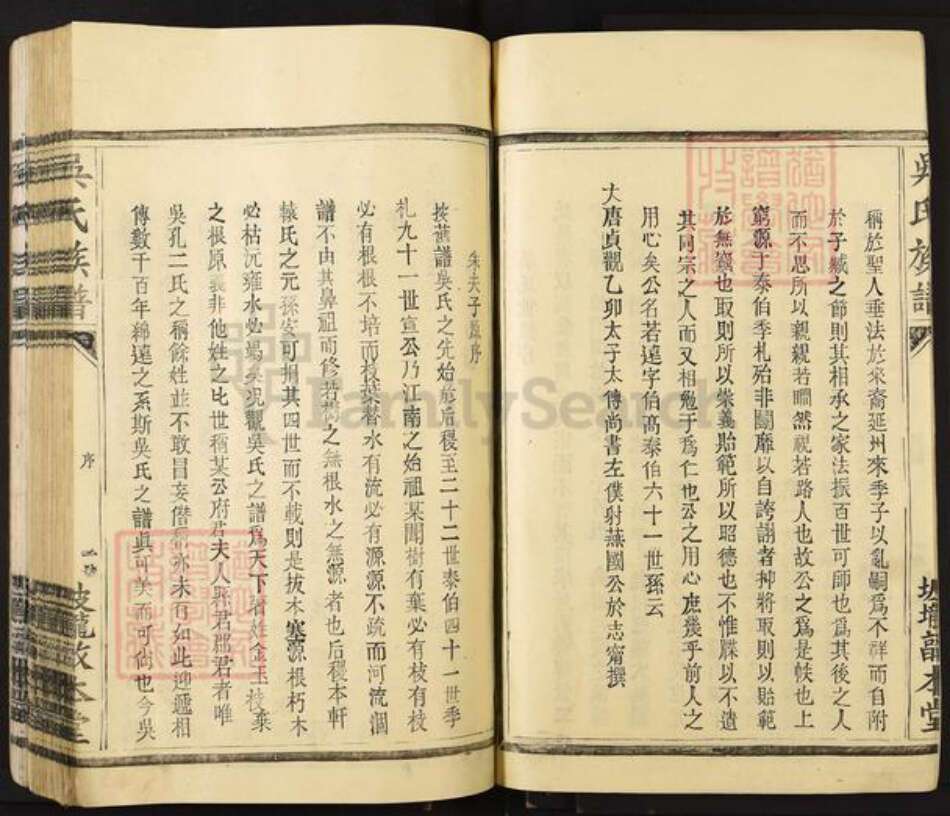 吳氏族譜
稱於聖人垂法於來裔延州來季子以亂嗣爲不祥而自附
於子臧之節則其相承之家法振百世可師也爲其後之人
而不思所以親親若瞯然視若路人也故公之爲是帙也上
窮源于泰伯季札殆非鬬靡以自誇謝者抑將取則以貽範
於無窮也取則所以崇義貽範所以昭德也不惟牒以不遺
其同宗之人而又相勉于爲仁也公之用心庶幾乎前人之
用心矣公名若達字伯高泰伯六十一世孫云
大唐貞觀乙卯太子太傅尚書左僕射燕國公於志甯撰
本堂
朱夫子序
按舊譜吳氏之先始於后稷至二十二世泰伯四十一世季
札九十一世宣公乃江南之始祖某聞樹有葉必有枝有枝
必有根根不培而枝葉替水有流必有源源不疏而河流涸
譜不由其鼻祖而修若樹之無根水之無源者也后稷本軒
轅氏之元孫安可捐其四世而不載則是拔木塞源根朽木
必枯沉雍水必竭矣況觀吳氏之譜爲天下著姓金玉枝葉
之根原義非他姓之比世稱某公府君夫人縣君郡君者唯
吳孔二氏之稱餘姓並不敢冒妄僭稱亦未有如此迎遞相
傳數千百年綿遠之系斯吳氏之譜眞可美而可尙也今吳
吳氏族譜
序
坡瓏敦本堂
FamilySearch